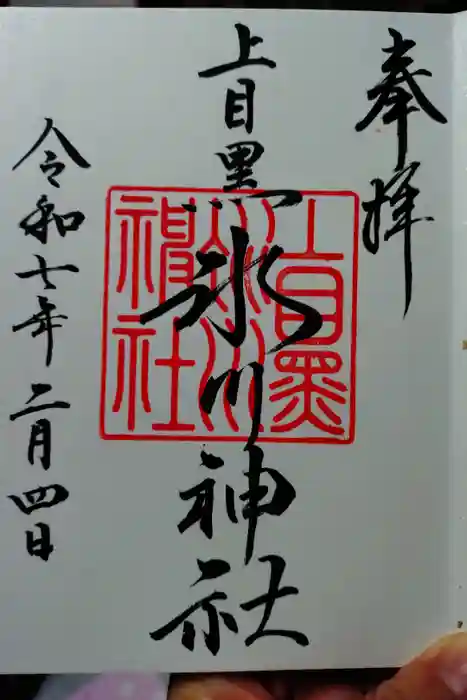 奉拝
上目黒氷川神社
令和七年二月四日
上目黒氷川神社